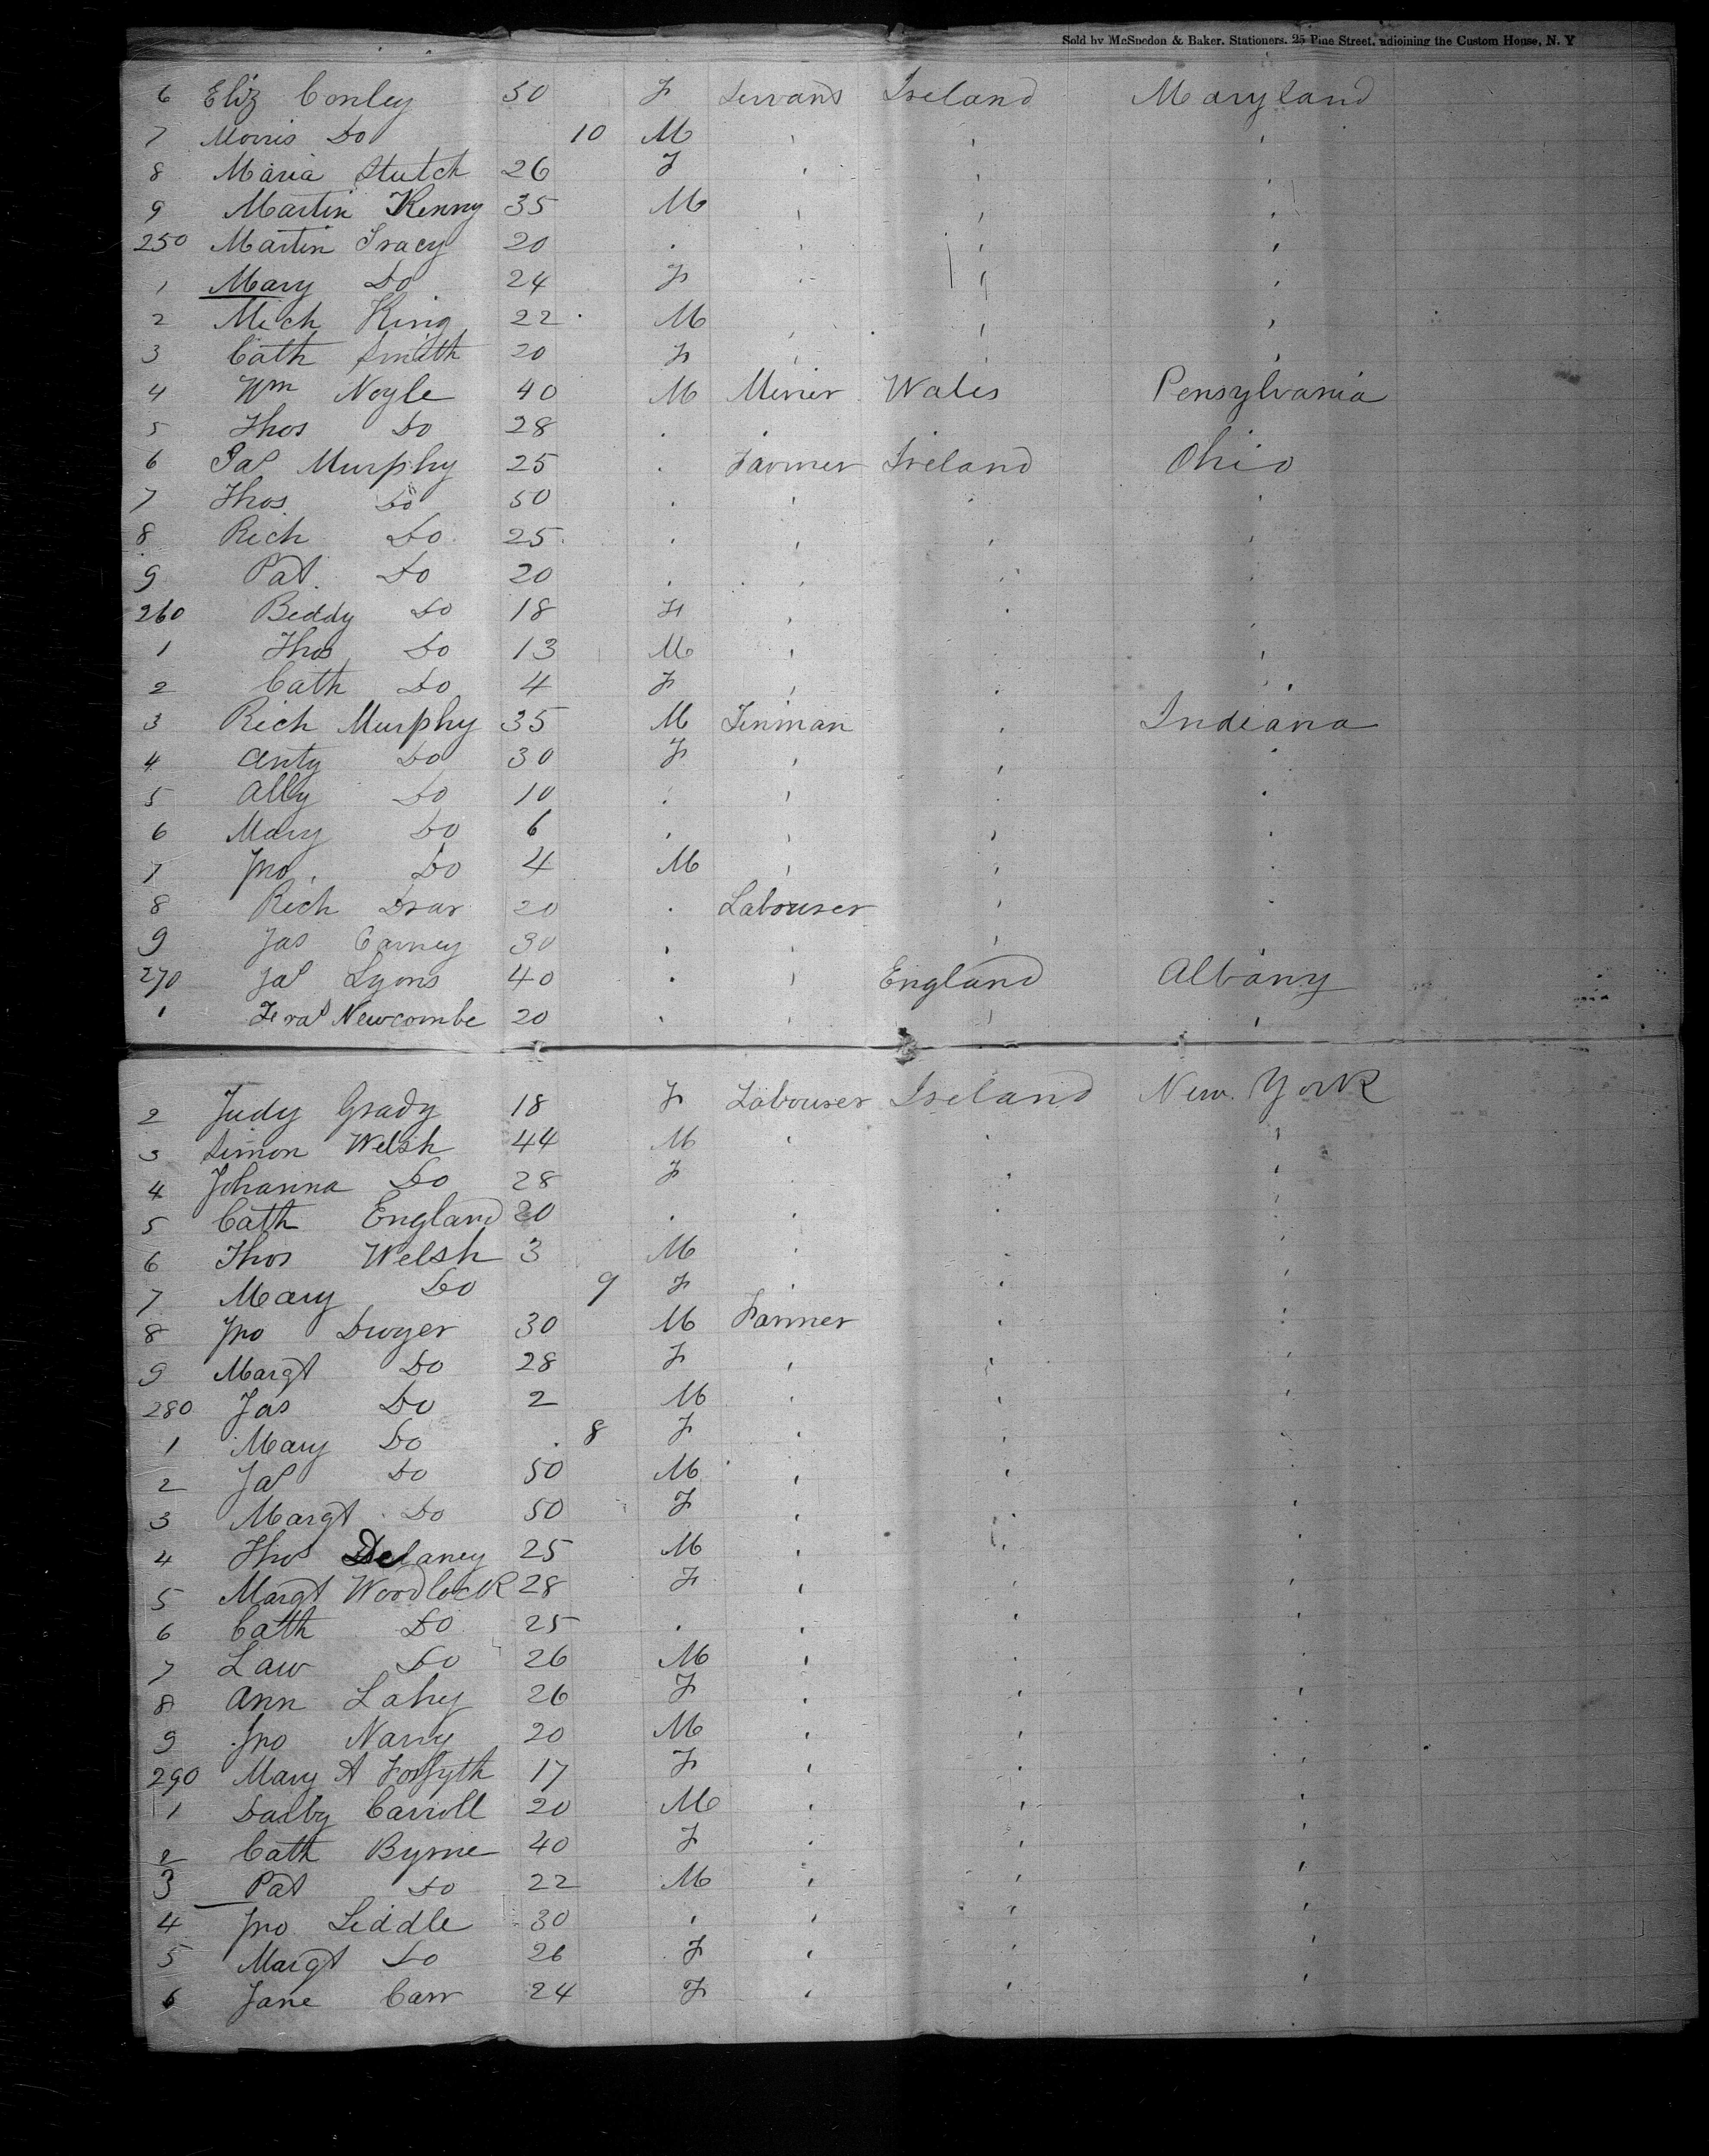 Sold by McSpedon & Baker, Stationers, 25 Pine Street, adjoining the Custom House, N. Y
6 Eliz Conley 50 F Servans Ireland Maryland
7 Morris Do 10 M ' ' '
8 Maria Stutch 26 F ' ' '
9 Martin Kenny 35 M ' ' '
250 Martin Tracy 20 . ' ' '
1 Mary Do 24 F ' ' '
2 Mich King 22 M ' ' '
3 Cath Smith 20 F ' ' '
4 Wm Noyle 40 M Miner Wales Pensylvania
5 Thos Do 28 . . . '
6 Jas Murphy 25 . Farmer Ireland Ohio
7 Thos. Do 50 . ' ' '
8 Rich Do 25 . ' ' '
9 Pat. Do 20 . ' ' '
260 Biddy Do 18 F ' ' '
1 Thos Do 13 M ' ' '
2 Cath Do 4 F ' ' '
3 Rich Murphy 35 M Tinman ' Indiana
4 Anty Do 30 F ' ' '
5 Ally Do 10 . ' ' '
6 Mary Do 6 . ' ' '
7 Jno. Do 4 M ' ' '
8 Rich 20 . Labourer ' '
9 Jas Carney 30 . ' '
270 Jas Lyons 40 . ' England Albany
1 Newcombe 20 . ' ' '
2 Judy Grady 18 F Labourer Ireland New York
3 Simon Welsh 44 M ' ' '
4 Johanna Do 28 F ' '
5 Cath England 20 . ' ' '
6 Thos Welsh 3 M ' ' '
7 Mary Do 9 F ' ' '
8 Jno Dwyer 30 M Farmer ' '
9 Margt Do 28 F ' ' '
280 Jas Do 2 M ' ' '
1 Mary Do . 8 F ' '
2 Jas Do 50 M ' '
3 Margt Do 50 F ' ' '
4 Thos Delaney 25 M ' ' '
5 Margt Woodlock 28 F ' ' '
6 Cath Do 25 . ' ' '
7 Law Do 26 M ' ' '
8 Ann Lahy 26 F ' ' '
9 Jno Narry 20 M ' ' '
290 Mary A Forsyth 17 F ' ' '
1 Darby Carroll 20 M ' ' '
2 Cath Byrne 40 F ' ' '
3 Pat Do 22 M ' ' '
4 Jno Liddle 30 ' ' ' '
5 Margt Do 26 F ' ' '
6 Jane Carr 24 F ' ' '